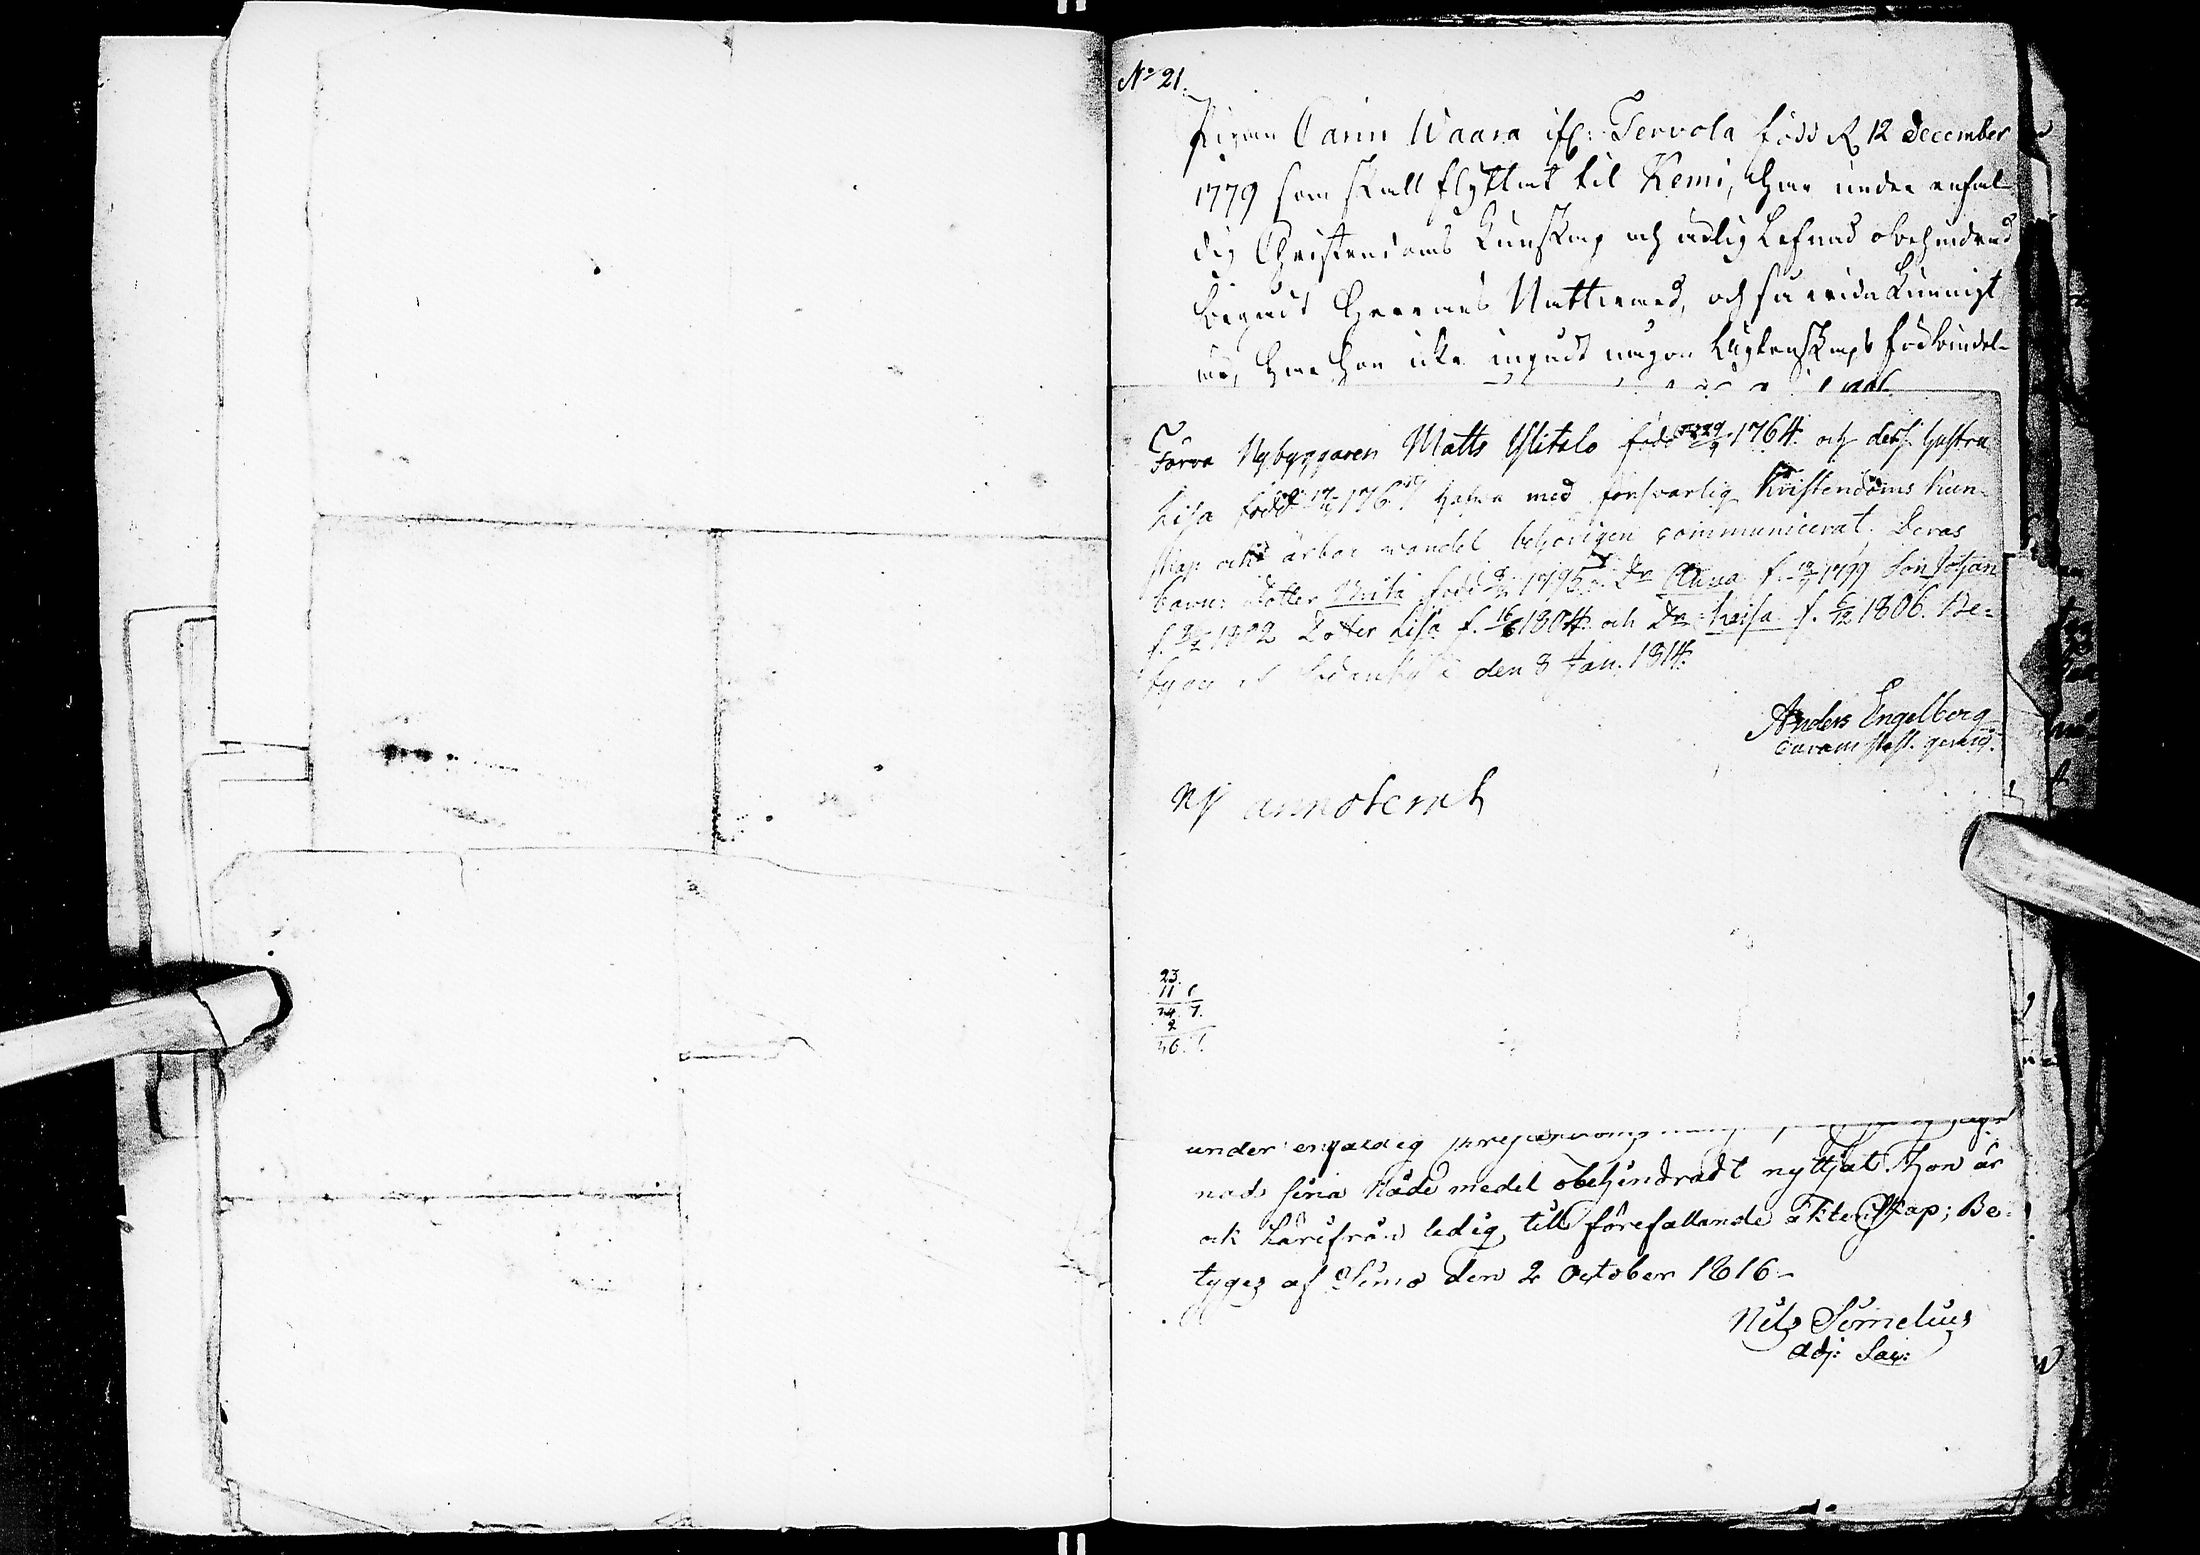 No 21.
Pigan Carin Waara ifr: Tervola född d. 12 December
1779 som skall flyttat til Kemi, har under enfal-
dig Christendoms Kunskap och ärlig Lefnad obehindrad
begådt Herrans Nattvard, och så vida kunnigt
är, har hon icke ingådt någon Ägtenskaps förbindel-
Förra Nybyggaren Matts Ylitalo född 29/9 1764. och dess hustru
Lisa född 176 hafva med försvarlig Kristendoms kun-
skap och ärbar wandel behörigen communicerat. Deras
barn: dotter Brita född 1795. Dr Anna f. 1799 Son Johan
f. 1802 Doter Lisa f. 16/6 1804. och Dr Kajsa f. 6/12 1806. Be-
tygar af Sodankylä den 8 Jan. 1814.
Anders Engelberg
curam past. gerens.
Ny annoterat
23.
11 6
34. 7.
2
36. 7.
under enfaldig
nads sina Nåde medel obehindradt nyttjat. Hon är
ock härifrån ledig till förefallande äktenskap; Be-
tyges af Simo den 2 October 1816-
Nils Sumelius
adj: Sac: